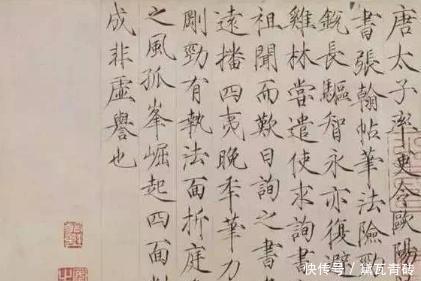 唐太子率更令歐陽
書張翰帖筆法險勁
銳長驅智永亦復避
雞林嘗遣使求詢書
祖聞而歎曰詢之書
遠播四夷晚年筆力
剛勁有執法面折庭
之風孤峯崛起四面
成非虛譽也
快传号/黛瓦青砖